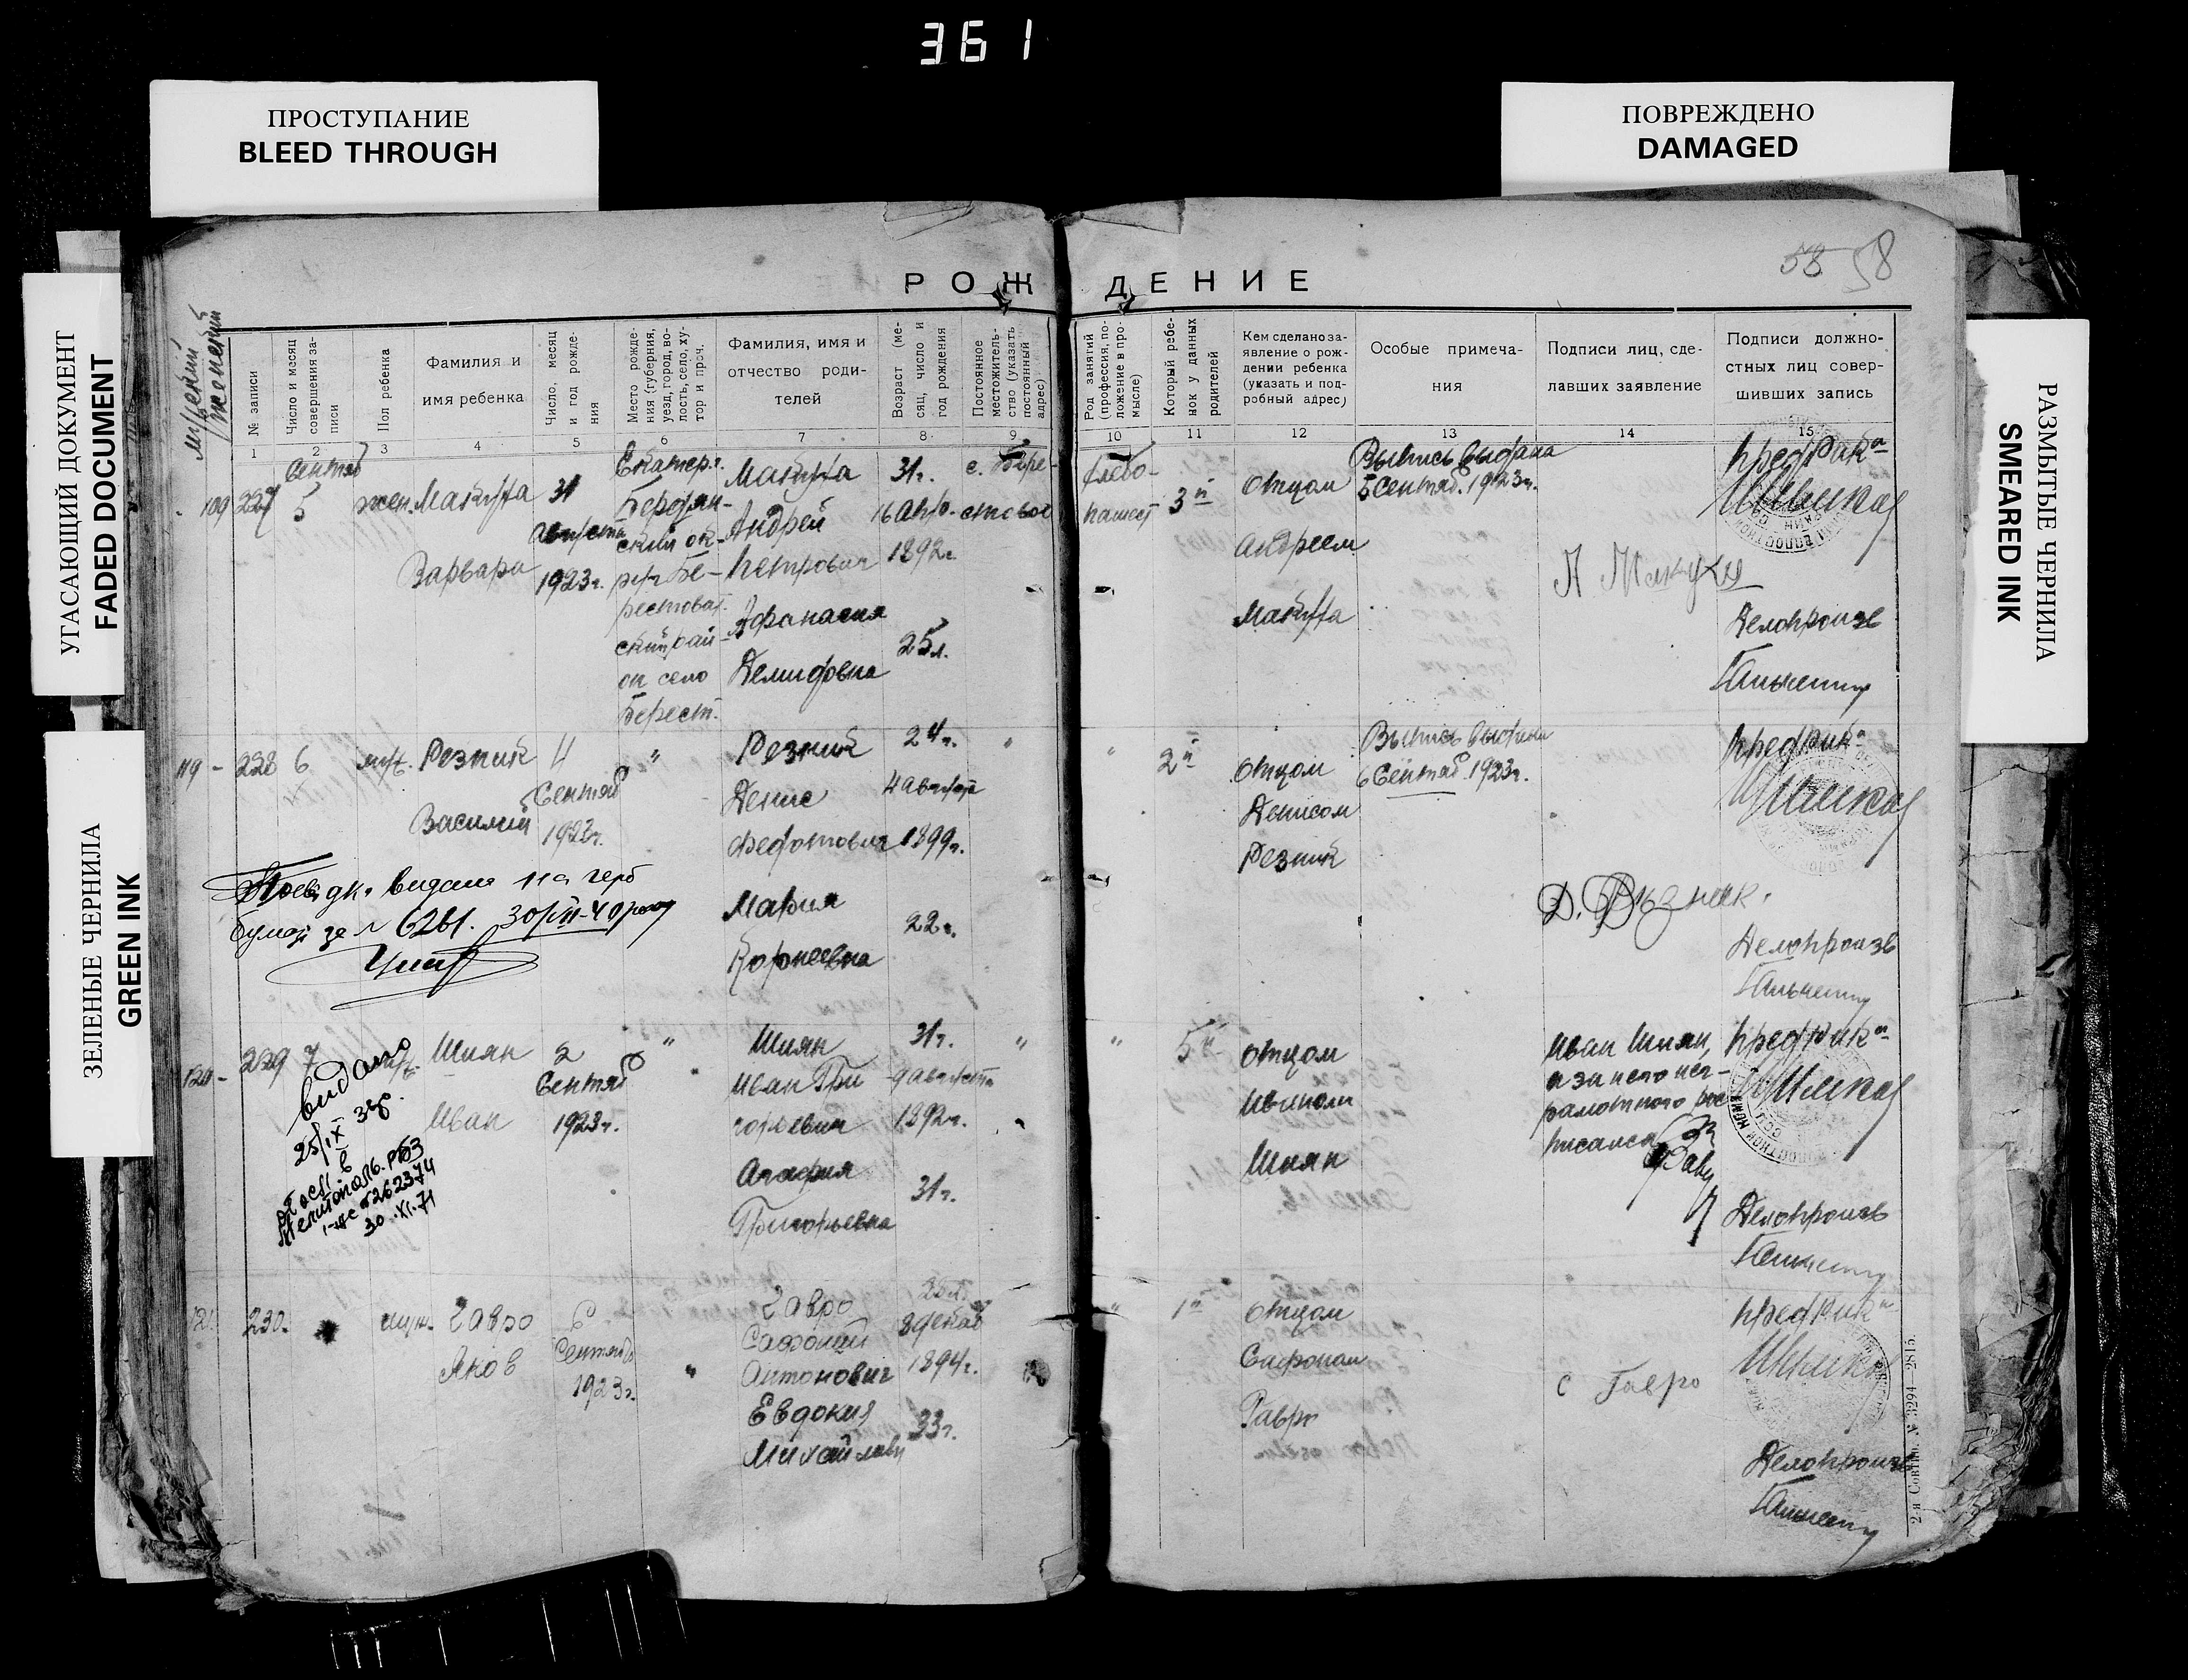 361
ПРОСТУПАНИЕ
BLEED THROUGH
ПОВРЕЖДЕНО
DAMAGED
УГАСАЮЩИЙ ДОКУМЕНТ
FADED DOCUMENT
ЗЕЛЕНЫЕ ЧЕРНИЛА
GREEN INK
РАЗМЫТЫЕ ЧЕРНИЛА
SMEARED INK
58 58
РОЖДЕНИЕ
мужский
женский
№ записи
Число и месяц
совершения за-
писи
Пол ребенка
Фамилия и
имя ребенка
Число, месяц
и год рожде-
ния
Место рожде-
ния (губерния,
уезд, город, во-
лость, село, ху-
тор и проч.
Фамилия, имя и
отчество роди-
телей
Возраст (ме-
сяц, число и
год рождения
Постоянное
местожитель-
ство (указать
постоянный
адрес)
Род занятий
(профессия, по-
ложение в про-
мысле)
Который ребе-
нок у данных
родителей
Кем сделано за-
явление о рож-
дении ребенка
(указать и под-
робный адрес)
Особые примеча-
ния
Подписи лиц, сде-
лавших заявление
Подписи должно-
стных лиц совер-
шивших запись
1 2 3 4 5 6 7 8 9 10 11 12 13 14 15
109 227
Сентяб
5
жен.
Макуха
Варвара
31
Августа
1923г.
Екатер.г.
Бердян-
ский ок-
руг Бе-
рестоват.
ский рай-
он село
Берест.
Макуха
Андрей
Петрович
Афанасия
Демидовна
31г.
16 Апр.
1892г.
25л.
с. Бере-
стовое
хлебо-
пашест
3й
Отцом
Андреем
Макуха
Выпись выдана
5 Сентяб. 1923г.
А Макуха
Пред Рика
Делопроизв
119 - 228
6
муж.
Резник
Василий
4
Сентяб
1923г.
"
Резник
Денис
Федотович
Мария
Корнеевна
24г.
4 августа
1899г.
22г.
"
"
2й
Отцом
Денисом
Резник
Выпись выдана
6 Сентяб. 1923г.
Д. Рызник.
Пред Рика
Делопроизв
видана на герб
бумазі за № 6261. 30/VII-40 року
120 - 229
7
муж.
Шиян
Иван
2
Сентяб
1923г.
"
Шиян
Иван Гри
горьевич
Агафия
Григорьевна
31г.
9 августа
1892г.
31г.
"
"
5й
Отцом
Иваном
Шиян
Иван Шиян,
а за него нег-
рамотного рос
писался
Пред Рика
Делопроизв
видано
25/IX 39р.
30.XI.71
121. 230.
муж.
Гавро
Яков
6
Сентяб
1923г.
"
Гавро
Сафоний
Антонович
Евдокия
Михайловн
28л.
8 декаб
1894г.
33г.
"
1й
Отцом
Сафоном
Гавро
С Гавро
Пред Рика
Делопроизв
2-я Совтип. № 3294—2815.